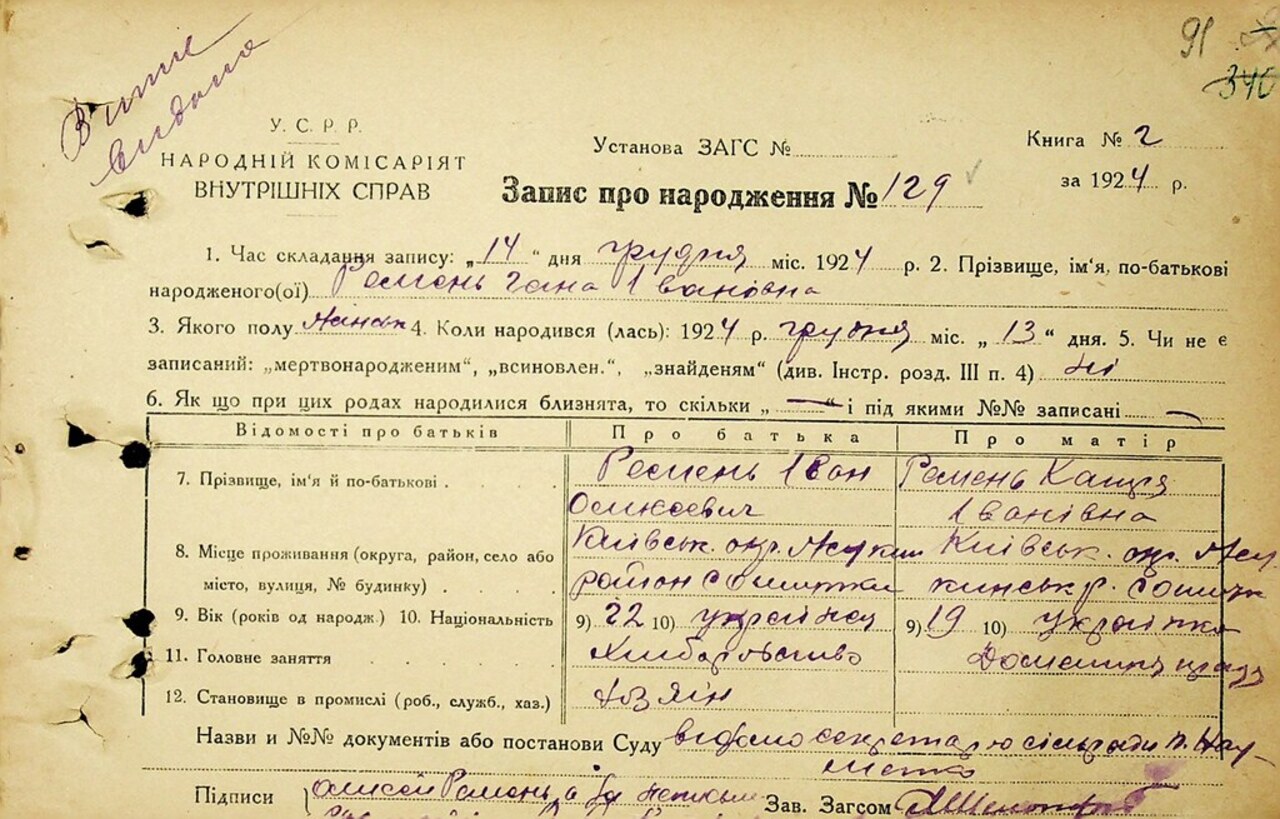 91
340
Витяг
видано
У. С. Р. Р.
НАРОДНІЙ КОМІСАРІЯТ
ВНУТРІШНІХ СПРАВ
Установа ЗАГС №
Книга № 2
за 1924 р.
Запис про народження № 129
1. Час складання запису: „14“ дня грудня міс. 1924 р. 2. Прізвище, ім'я, по-батькові
народженого(ої) Ремень Гана Іванівна
3. Якого полу 4. Коли народився (лась): 1924 р. грудня міс. „13“ дня. 5. Чи не є
записаний: „мертвонародженим“, „всиновлен.“, „знайденям“ (див. Інстр. розд. III п. 4) ні
6. Як що при цих родах народилися близнята, то скільки „—“ і під якими №№ записані —
Відомості про батьків Про батька Про матір
7. Прізвище, ім'я й по-батькові Ремень Іван Ремень
Іванівна
8. Місце проживання (округа, район, село або Київськ. окр. Київськ. окр.
місто, вулиця, № будинку) район
9. Вік (років од народж.) 10. Національність 9) 22 10) 9) 19 10) українка
11. Головне заняття Хліборобство
12. Становище в промислі (роб., служб., хаз.) хозяїн
Назви и №№ документів або постанови Суду відомо секретарю сільради
Підписи Ремень, а Зав. Загсом